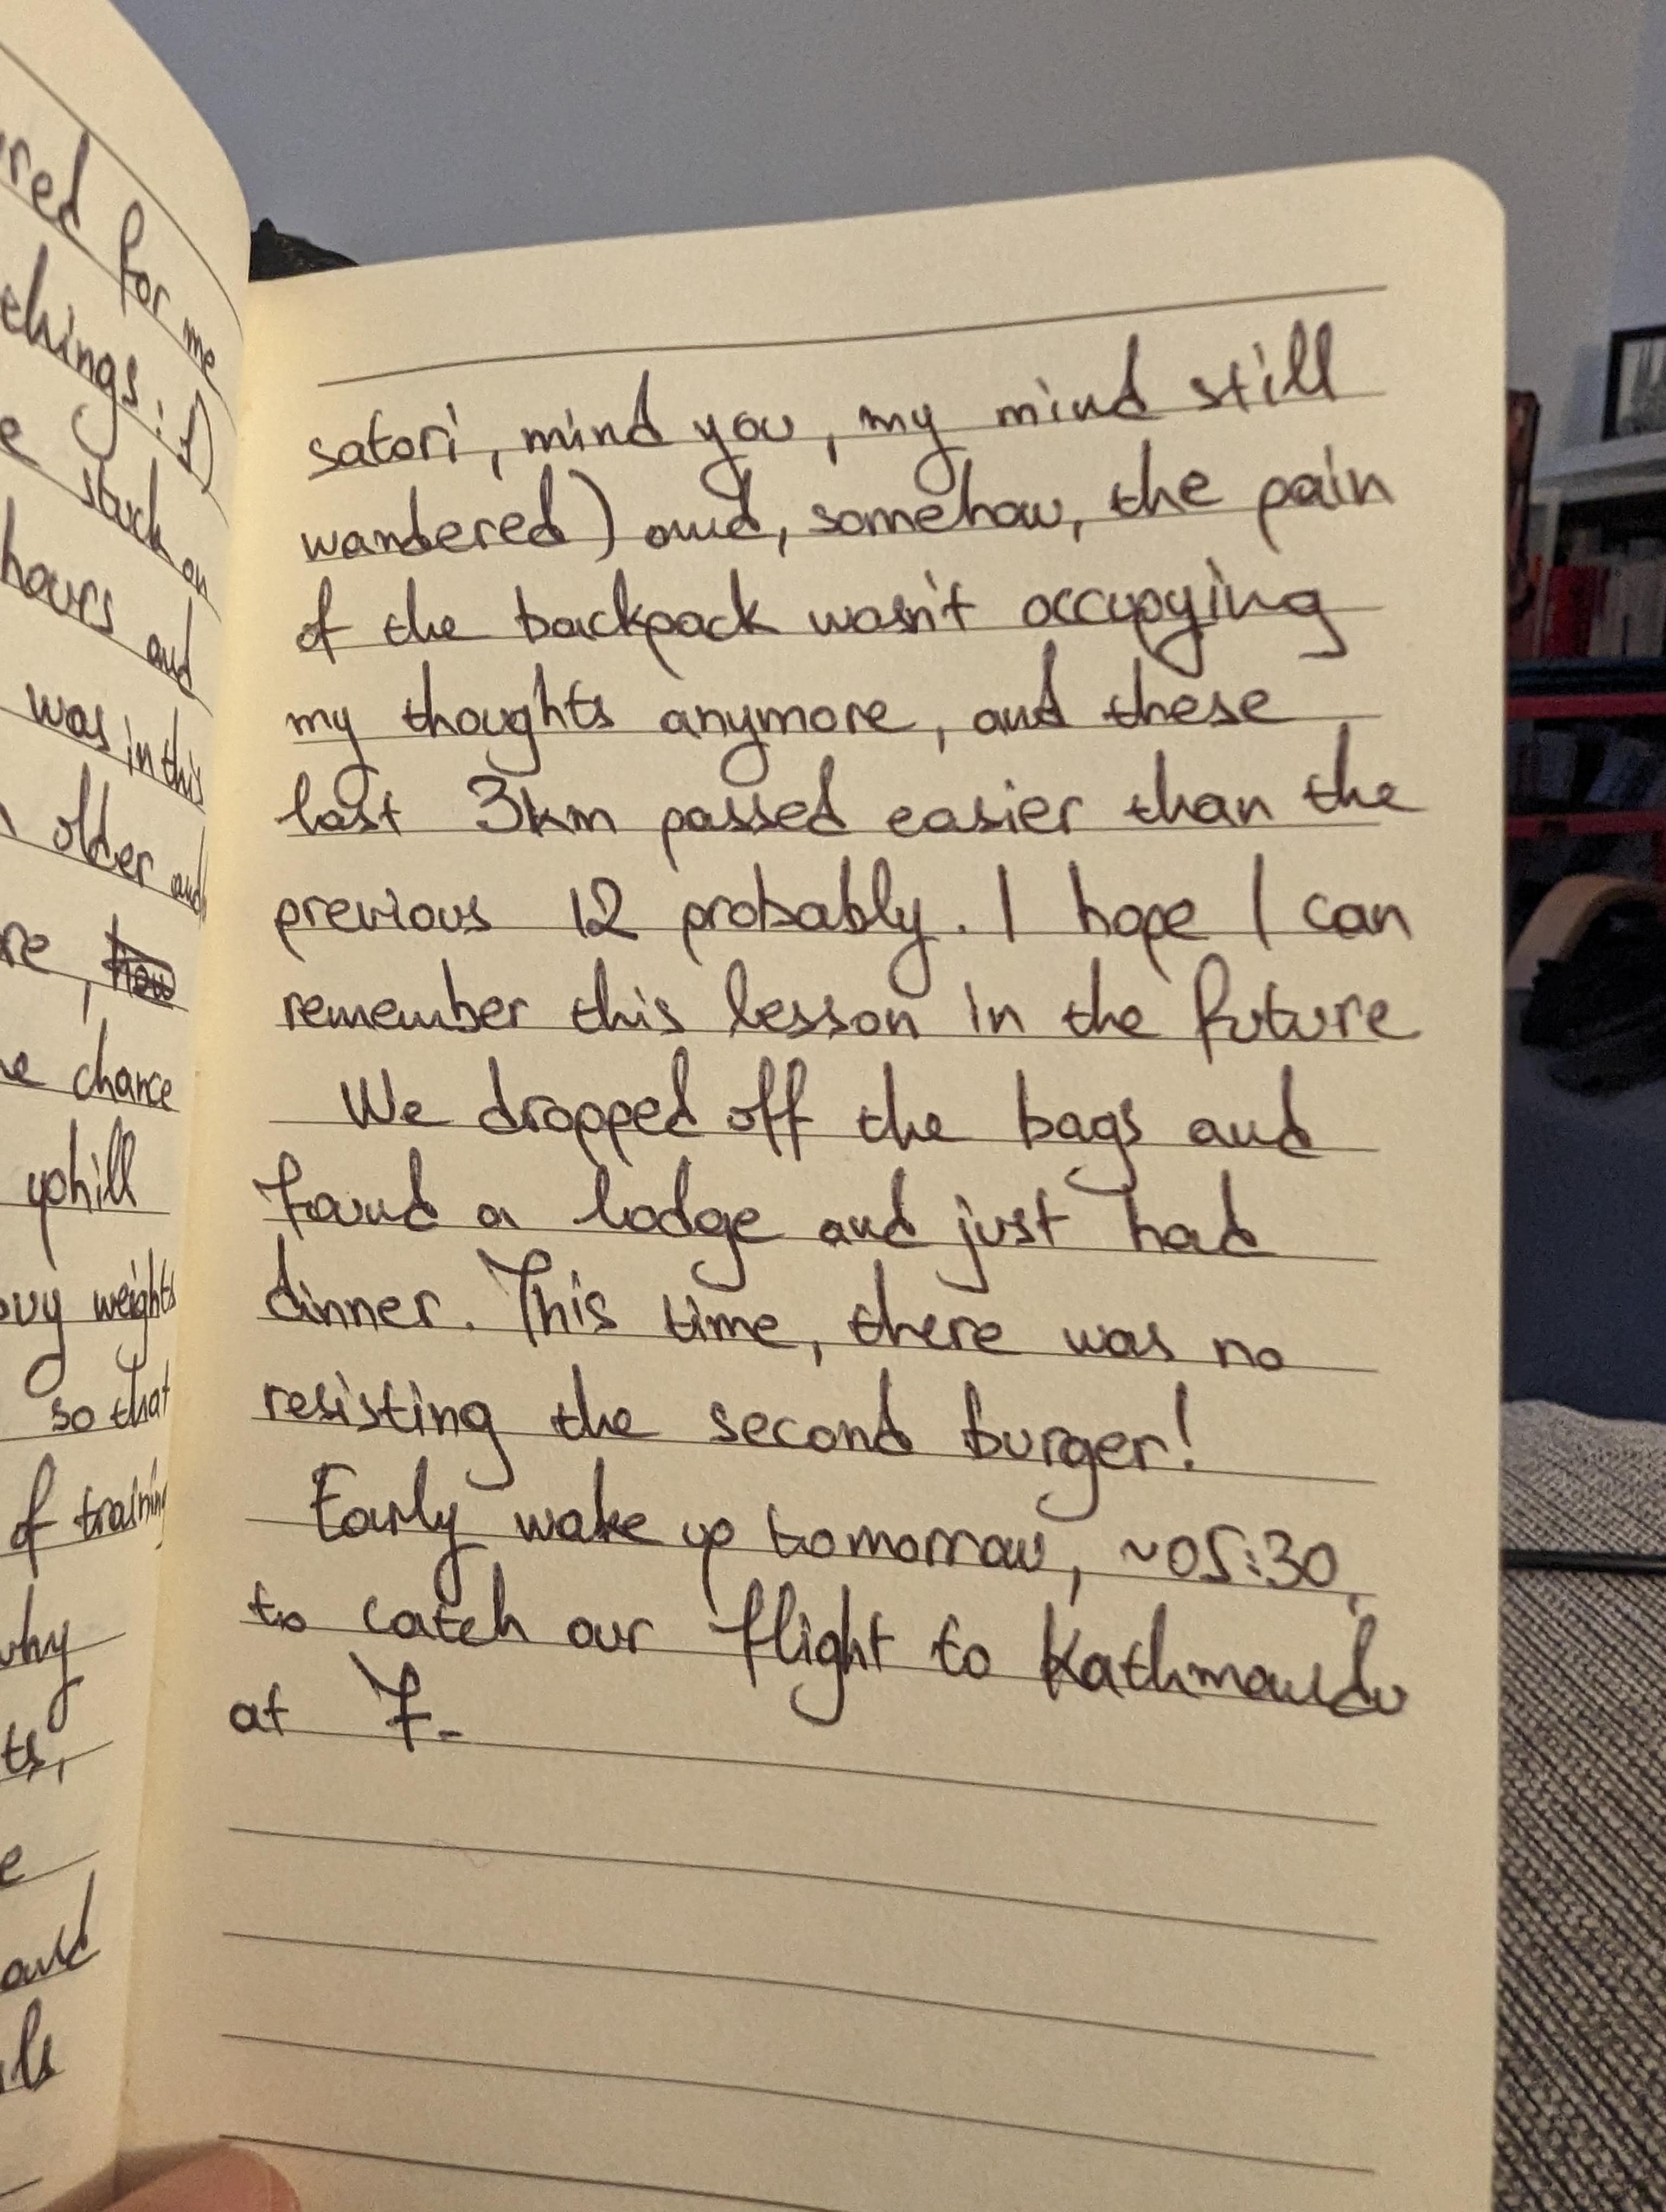 red for me
things :D
e stuck on
hours and
was in this
older and
re, how
e chance
uphill
vy weights
so that
of training
why
ts,
e
and
ls
satori, mind you, my mind still
wandered) and, somehow, the pain
of the backpack wasn't occupying
my thoughts anymore, and these
last 3km passed easier than the
previous 12 probably. I hope I can
remember this lesson in the future
We dropped off the bags and
found a lodge and just had
dinner. This time, there was no
resisting the second burger!
Early wake up tomorrow, ~05:30,
to catch our flight to Kathmandu
at 7-